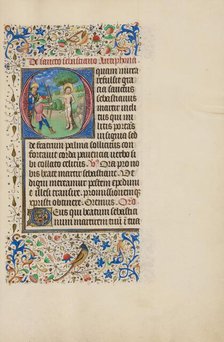 De sancto sebastiano Antiphona
quam mira
refulsit gra
cia sanctus
sebastianus
martir inclitus
qui mili
tis portās
insignia
sed
de fratrum palma sollicitus con
fortauit corda pauencia uerbo si
bi collato celitus. Ora pro no
bis beate martir sebastiane. Ut
digni mereamur pestem epydimi
e illesi transire. et promissionem
optinere. Oremus. Oro
Deus qui beatum sebastia
num martirem tuū ī tua